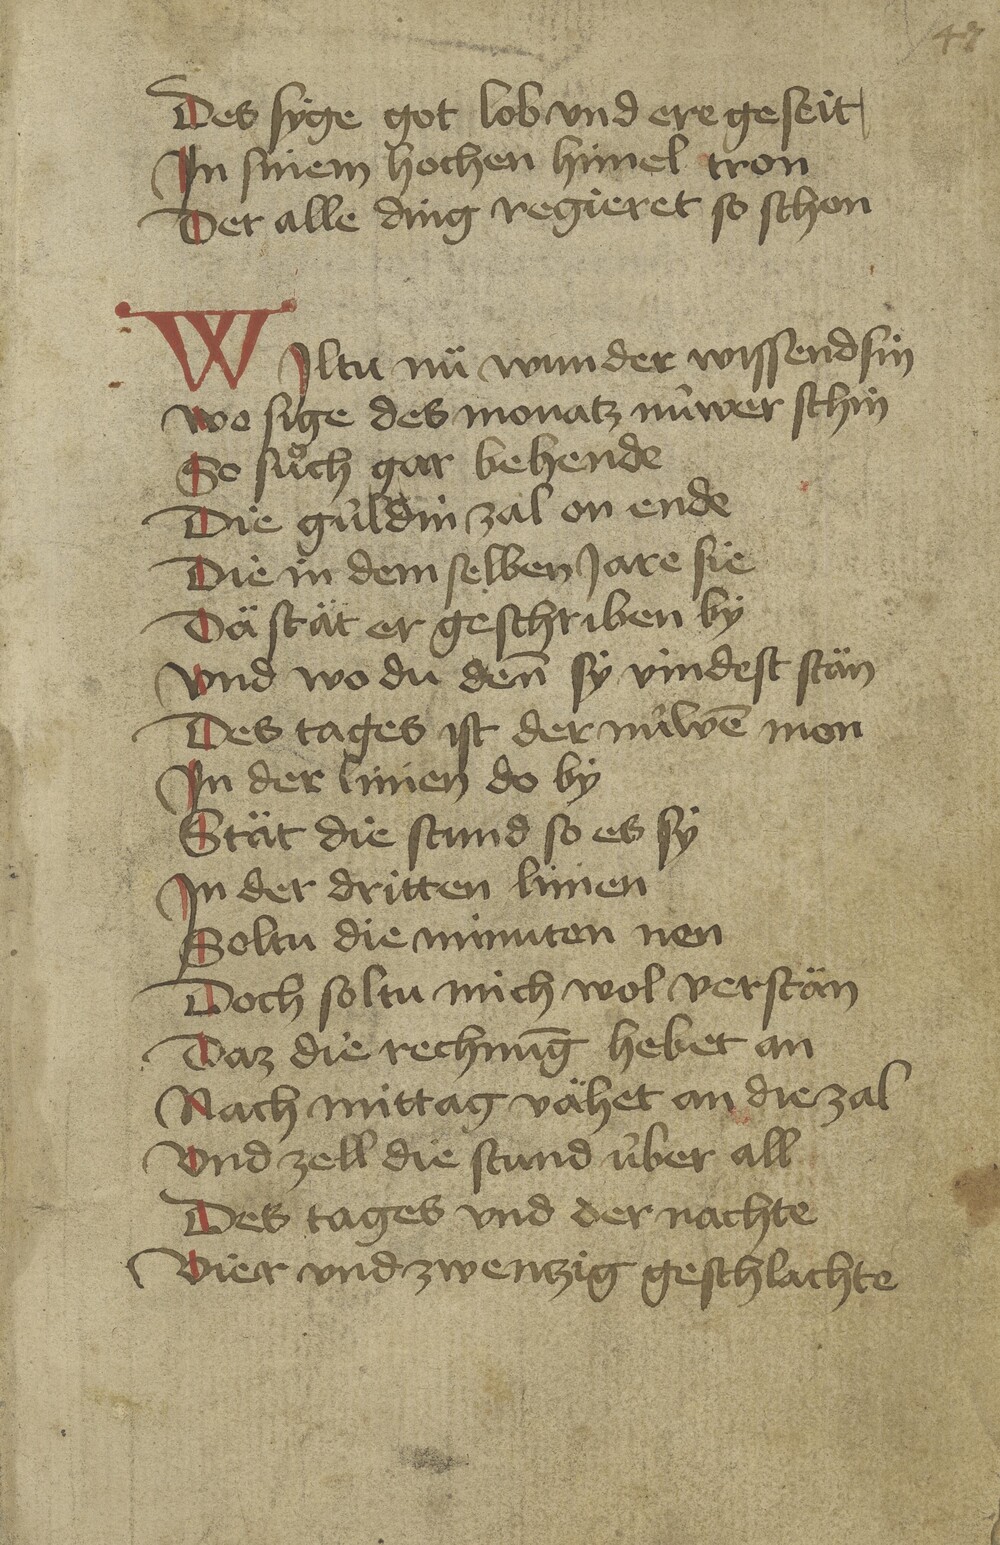 47
Des syge got lob vnd ere geseit
In sinem hochen himel tron
Der alle ding regieret so schon
WIltu nü wunder wissend sin
wo sige des monatz nüwer schin
So sůch gar behende
Die güldin zal on ende
Die in dem selben Jare sie
Dä stät er geschriben bÿ
vnd wo du deñ sÿ vindest stän
Des tages ist der nüwē mon
In der linien do bÿ
Stät die stund so es sÿ
In der dritten linien
Soltu die minuten nen
Doch soltu mich wol verstän
Daz die rechnūg hebet an
Nach mittag vähet an die zal
Vnd zell die stund über all
Des tages vnd der nachte
Vier vnd zwentzig geschlachte